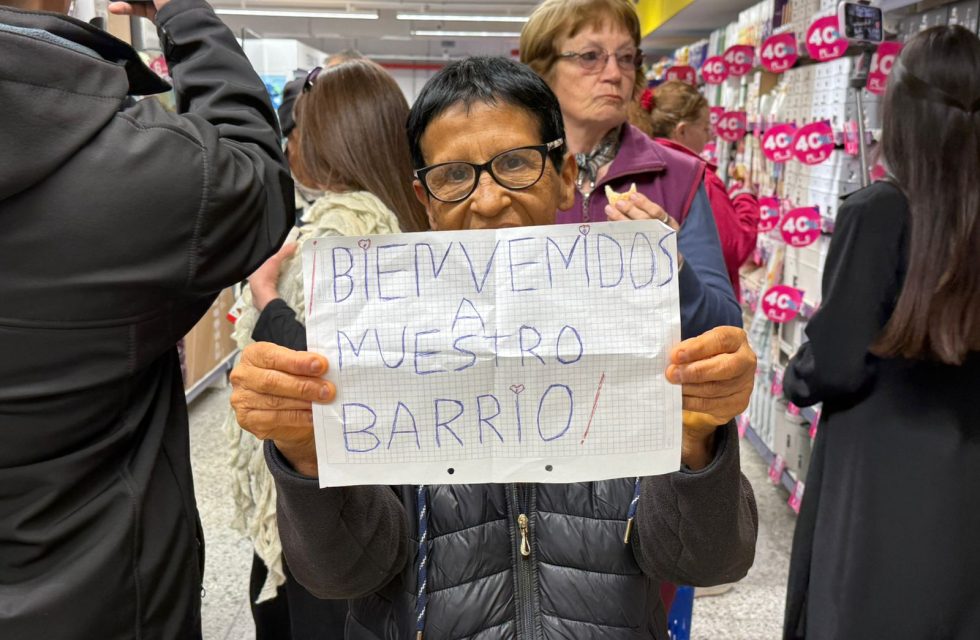 ¡BIENVENIDOS
A
NUESTRO
BARRIO!
40
40
40
40
40
40
40
40
40
40
40